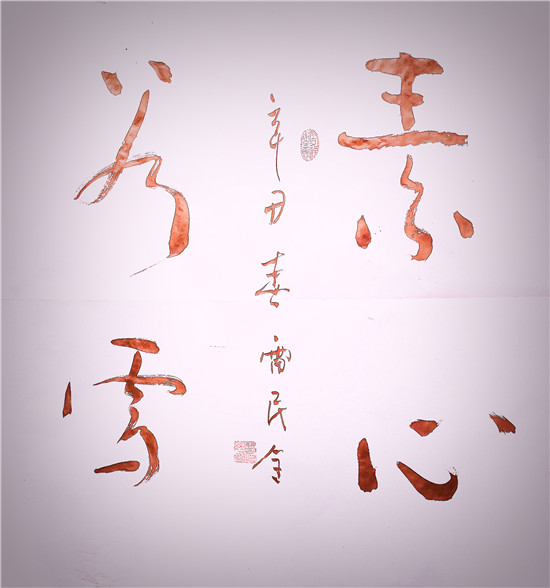 素心
若雪
辛丑春雷民全